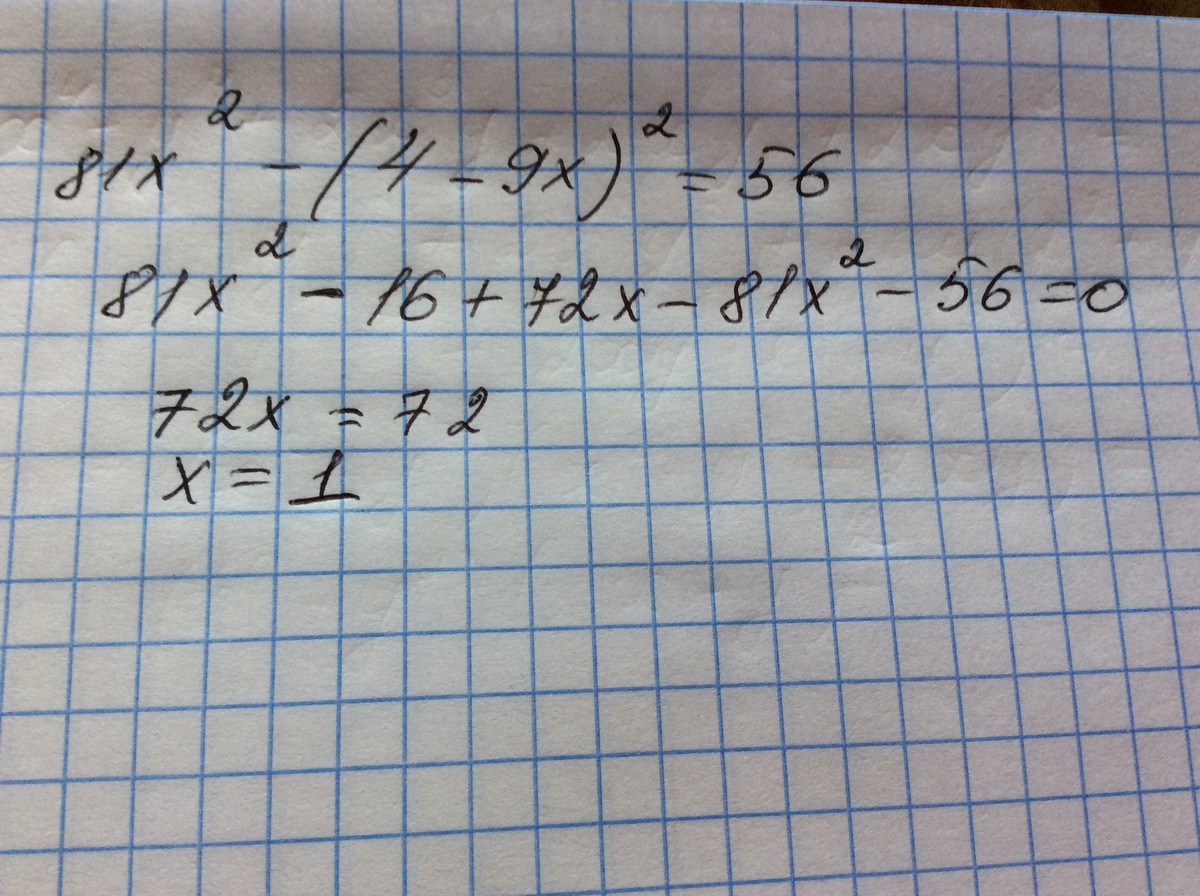 81x² - (4 - 9x)² = 56
81x² - 16 + 72x - 81x² - 56 = 0
72x = 72
x = 1